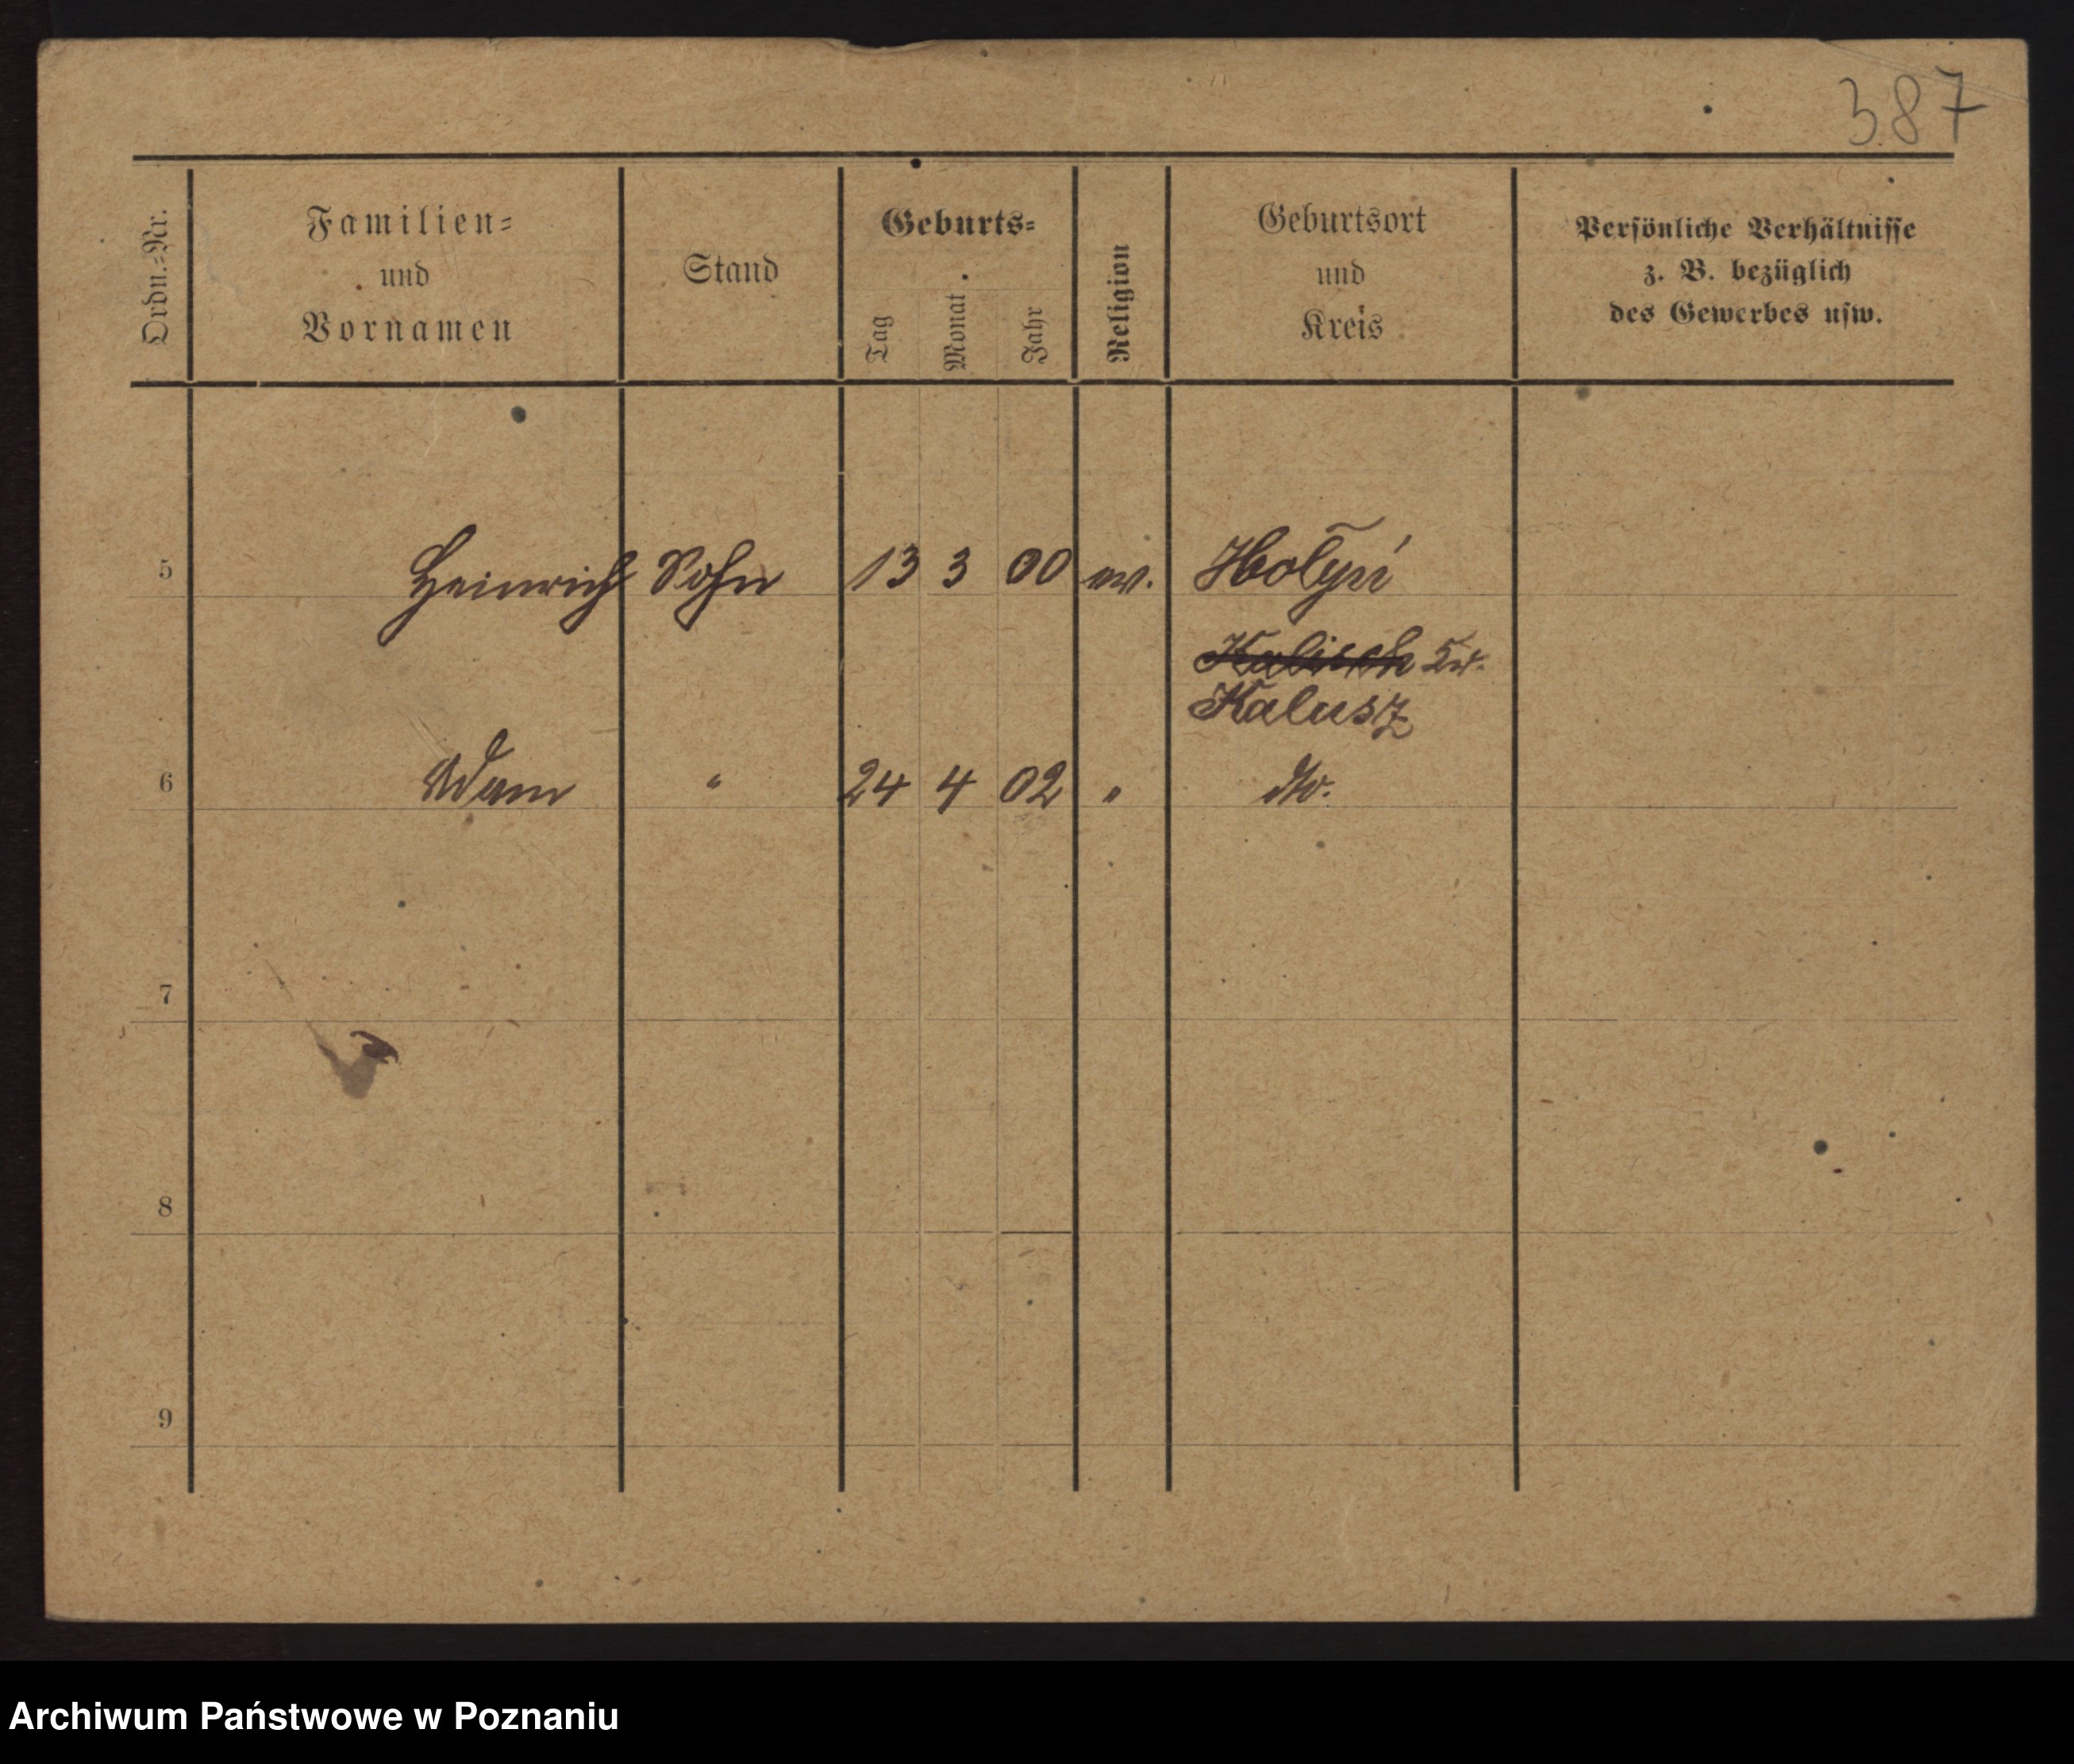 387
Ordn.=Nr.
Familien=
und
Vornamen
Stand
Geburts=
Tag
Monat
Jahr
Religion
Geburtsort
und
Kreis
Persönliche Verhältnisse
z. B. bezüglich
des Gewerbes usw.
5 Heinrich Sohn 13 3 00 ev. Hołyń
Kalisch Kr.
Kalusz
6 Adam " 24 4 02 " dto.
7
8
9
Archiwum Państwowe w Poznaniu